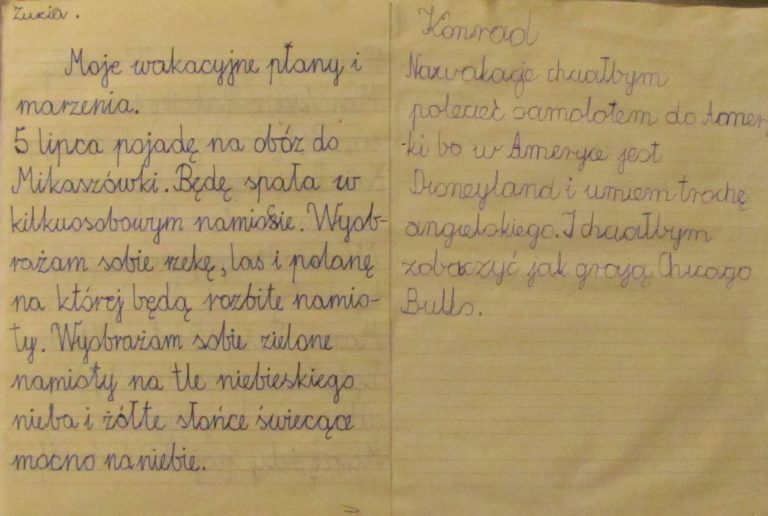 Zuzia.
Moje wakacyjne plany i
marzenia.
5 lipca pojadę na obóz do
Mikaszówki. Będę spała w
kilkuosobowym namiosie. Wyob-
rażam sobie rzekę, las i polanę
na której będą rozbite namio-
ty. Wyobrażam sobie zielone
namioty na tle niebieskiego
nieba i żółte słońce świecące
mocno na niebie.
Konrad
Na wakacje chciałbym
polecieć samolotem do Amery-
-ki bo w Ameryce jest
Disneyland i umiem trochę
angielskiego. I chciałbym
zobaczyć jak grają Chicago
Bulls.